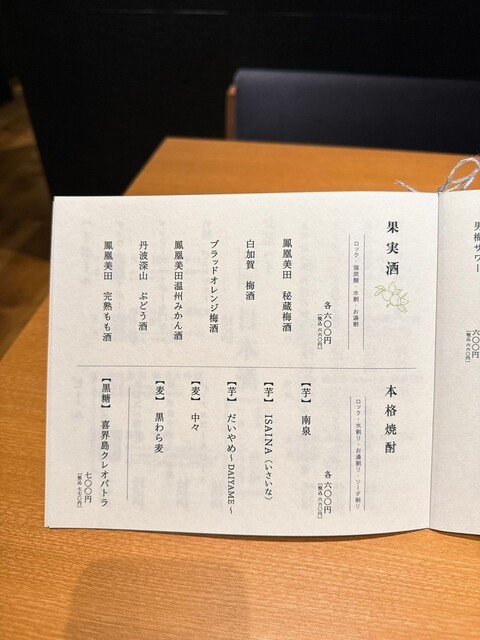 男梅サワー
六〇〇円
［税込 六六〇円］
果実酒
ロック・強炭酸・水割・お湯割
各 六〇〇円
［税込 六六〇円］
鳳凰美田 秘蔵梅酒
白加賀 梅酒
ブラッドオレンジ梅酒
鳳凰美田温州みかん酒
丹波深山 ぶどう酒
鳳凰美田 完熟もも酒
本格焼酎
ロック・水割り・お湯割り・ソーダ割り
各 六〇〇円
［税込 六六〇円］
【芋】 南泉
【芋】 ISAINA（いさいな）
【芋】 だいやめ～DAIYAME～
【麦】 中々
【麦】 黒わら麦
【黒糖】 喜界島クレオパトラ
七〇〇円
［税込 七七〇円］